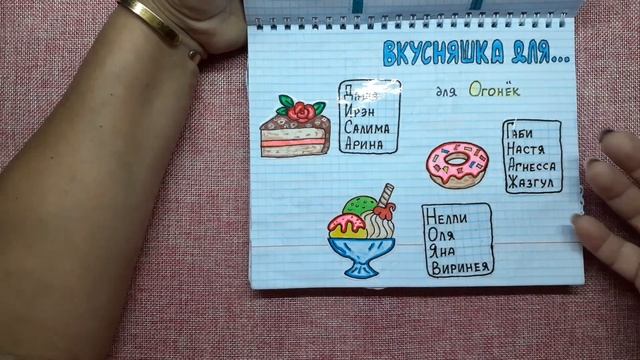 ВКУСНЯШКА ДЛЯ...
для Огонёк
Даша
Ирэн
Салима
Арина
Габи
Настя
Агнесса
Жазгул
Нелли
Оля
Яна
Виринея